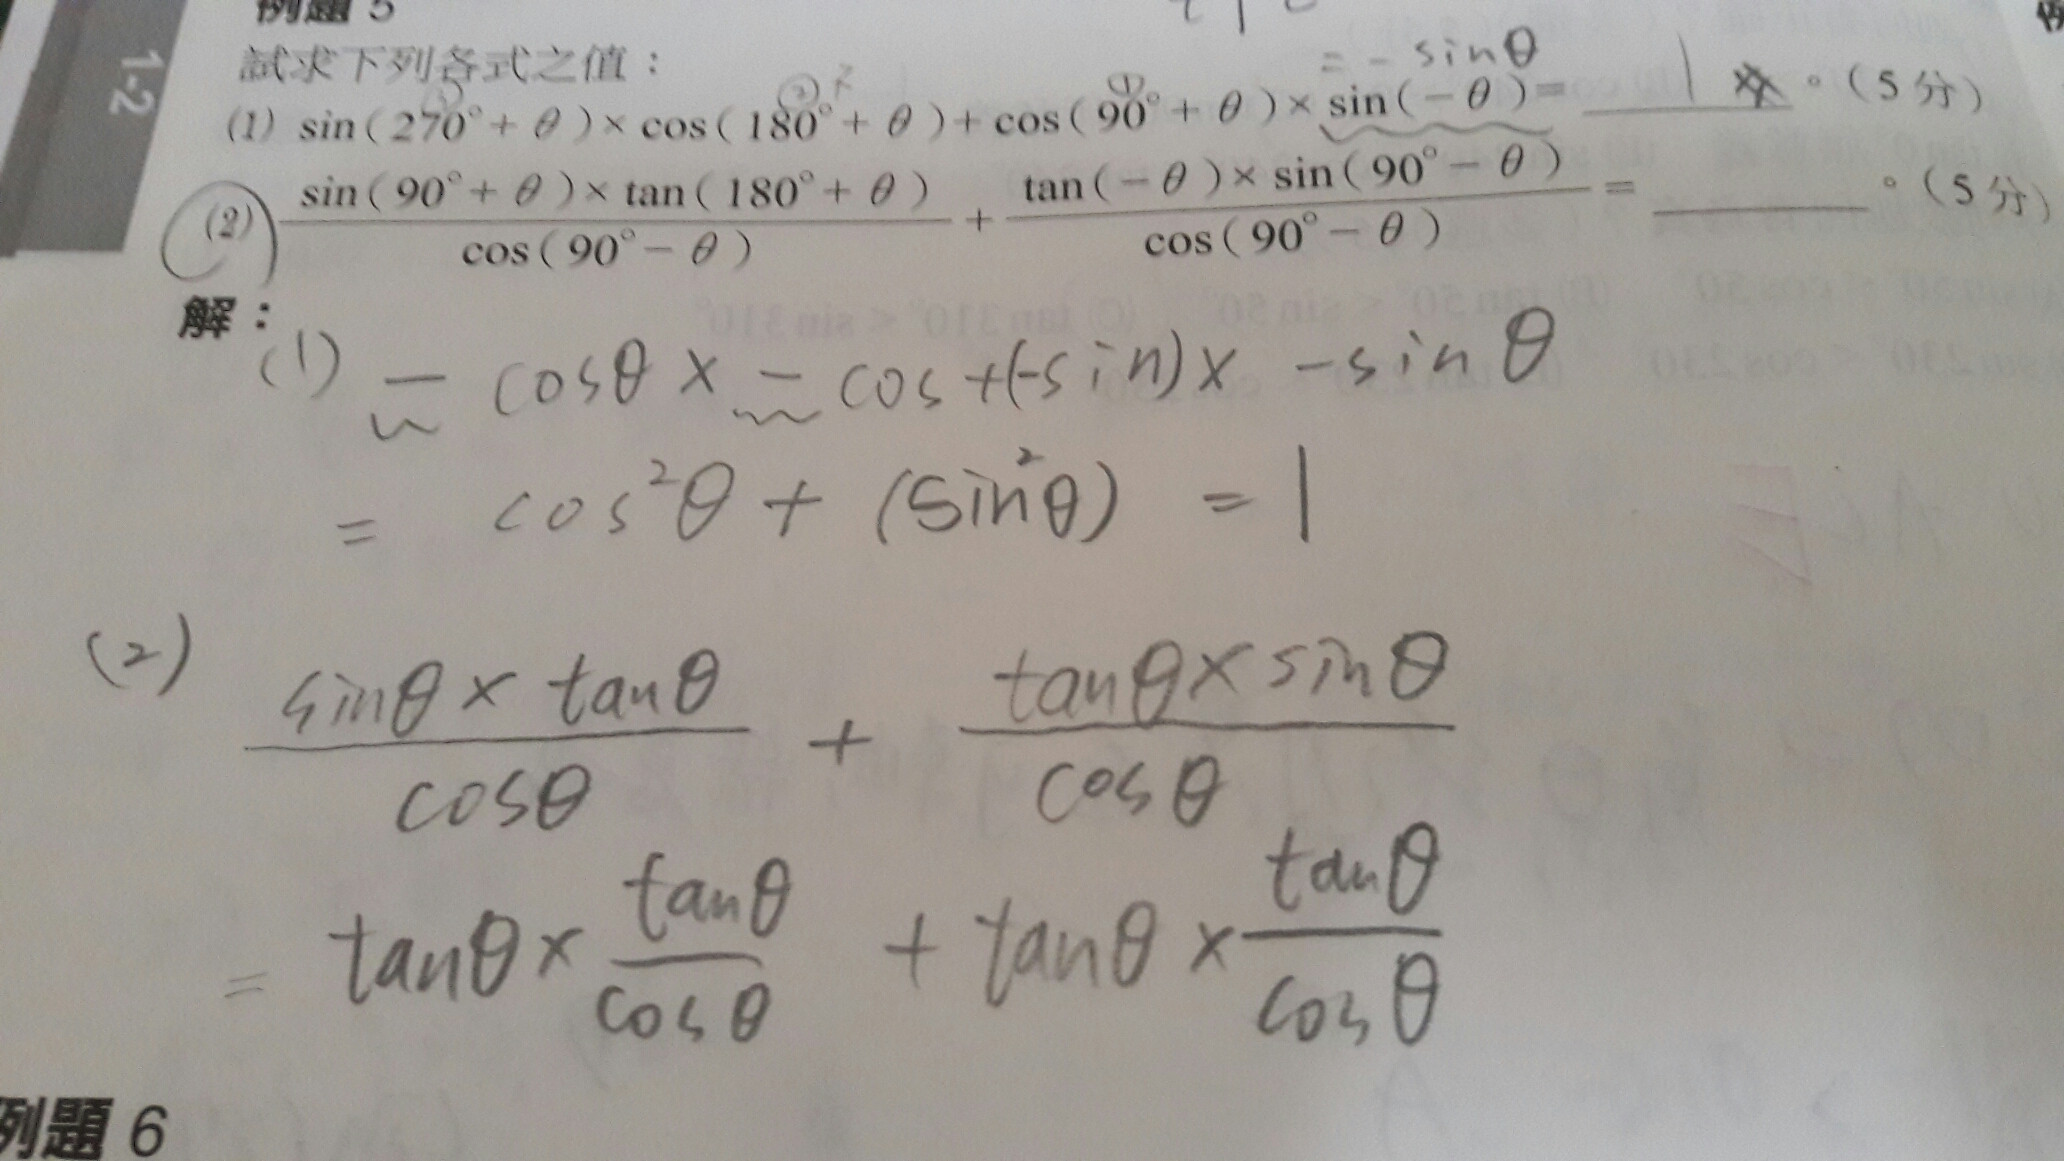 例題 5
1-2
試求下列各式之值：
= - sinθ
(1) sin(270°+θ)×cos(180°+θ)+cos(90°+θ)×sin(-θ)= 1 。(5分)
(2) \frac{sin(90°+θ)×tan(180°+θ)}{cos(90°-θ)} + \frac{tan(-θ)×sin(90°-θ)}{cos(90°-θ)} = 。(5分)
解：
(1) - cosθ × - cos +(-sin)× -sinθ
= cos²θ + (sin²θ) = 1
(2) \frac{sinθ × tanθ}{cosθ} + \frac{tanθ × sinθ}{cosθ}
= tanθ × \frac{tanθ}{cosθ} + tanθ × \frac{tanθ}{cosθ}
例題 6